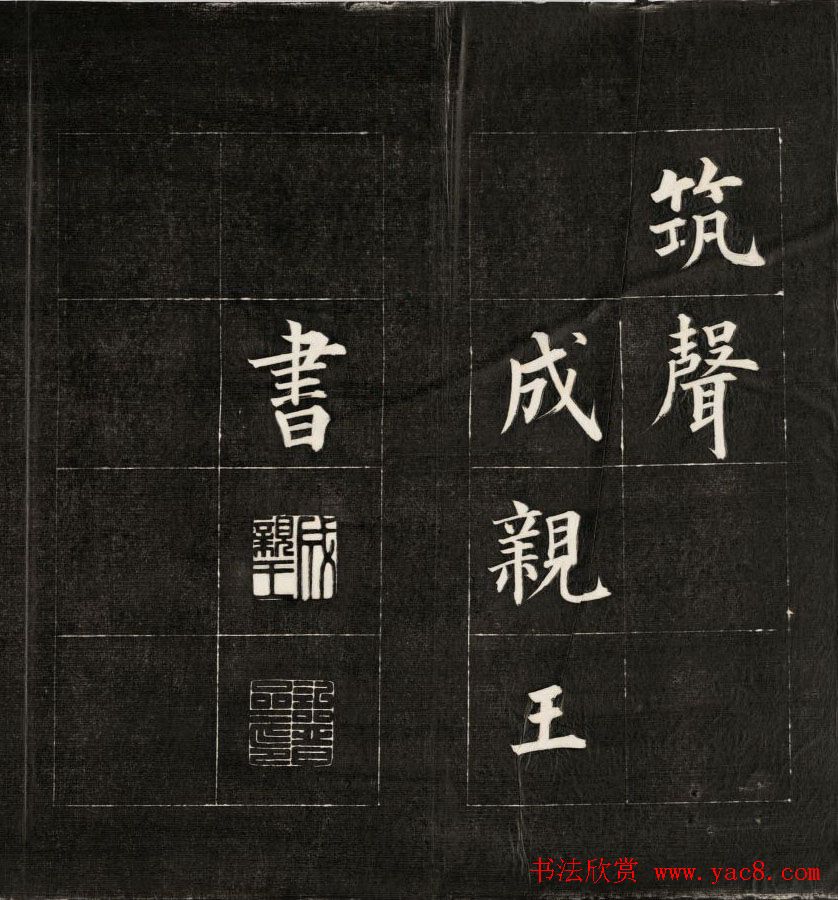 筑聲
成親王
書
成親王
书法欣赏 www.yac8.com